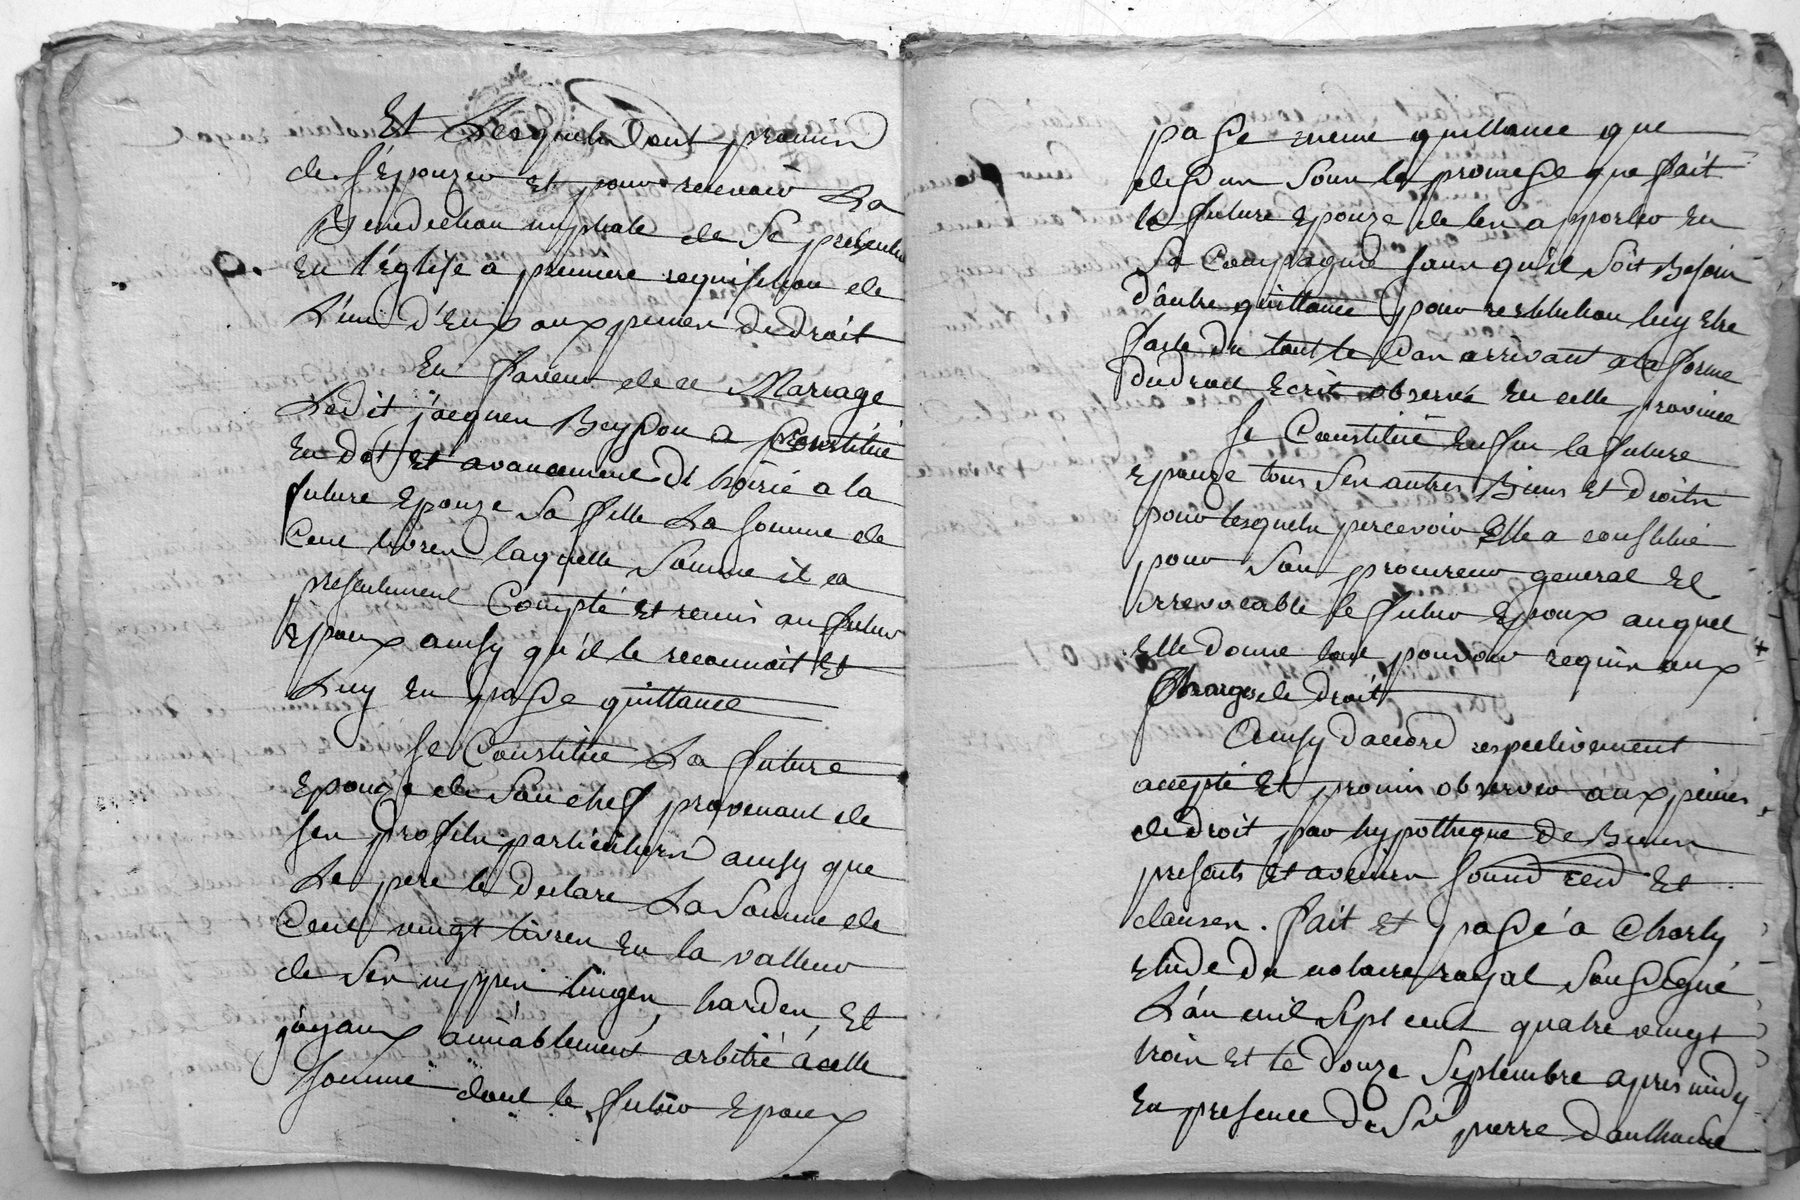 Et Lesquels ont promis
de s'épouzer et pour recevoir La
Benediction nuptiale de se presenter
En l'église a premiere requisition de
L'un d'Eux aux peines de droit
En faveur de ce Mariage
Ledit jacques Beysson a Constitué
En dot Et avancement d'hoirie a la
future Epouze Sa fille La somme de
Cent livres laquelle somme il a
presentement Compté et remis au futur
Epoux ainsy qu'il le reconnoit Et
Luy En passe quittance
Se Constitue La future
Epouze de Son chef provenant de
ses profits particuliers ainsy que
Le pere le declare La Somme de
Cent vingt livres En la valleur
de Ses nippes linges, hardes, Et
joyaux amiablement arbitré a celle
somme dont le futur Epoux
passe meme quittance que
des un Sous la promesse que fait
la future Epouze de les apporter En
Sa Compagnie sans qu'il Soit Besoin
d'autre quittance pour restitution luy Etre
faite du tout le Cas arrivant a la forme
du droit Ecrit observé En cette province
Se Constitue Enfin la future
Epouze tous Ses autres Biens Et droits
pour lesquels percevoir Elle a constitué
pour Son procureur general Et
irrevocable le futur Epoux auquel
Elle donne tout pouvoir requis aux
Charges de droit
Ainsy d'accord respectivement
accepté Et promis observer aux peines
de droit par hypotheque de Biens
presents Et avenirs soumis renon Et
clauses. fait Et passé a Charly
Etude du notaire royal Soussigné
L'an mil Sept cent quatre vingt
trois Et le douze Septembre apres midy
En presence de Sr pierre Danthoine